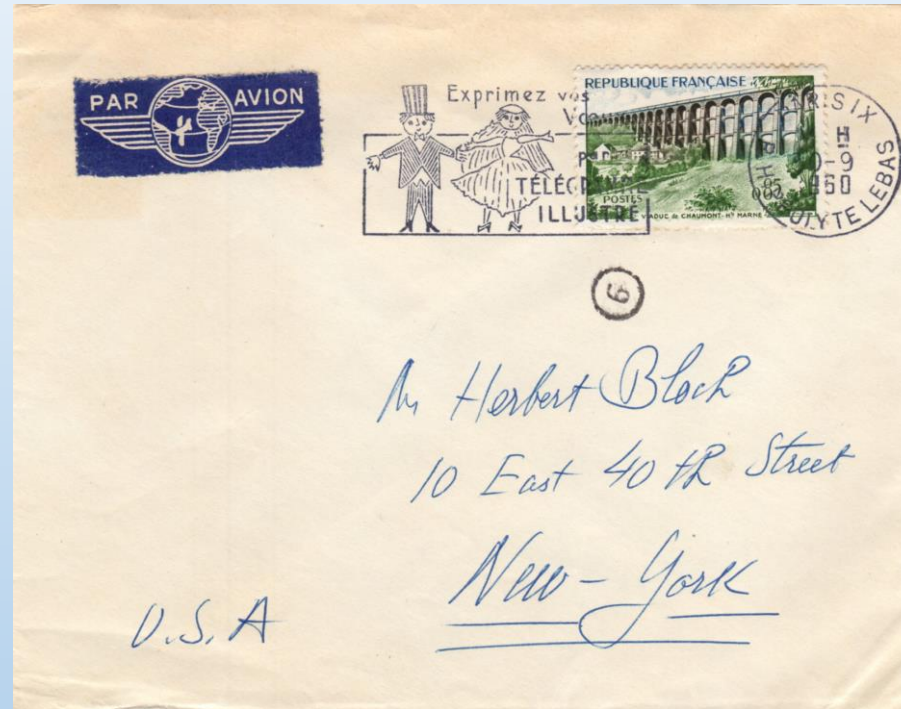 PAR AVION
Exprimez vos
TÉLÉGRAMME
ILLUSTRÉ
REPUBLIQUE FRANÇAISE
POSTES
VIADUC de CHAUMONT-Hte MARNE
PARIS IX
H
-9
R HIPPOLYTE LEBAS
6
Mr Herbert Bloch
10 East 40 th Street
New-York
U.S.A